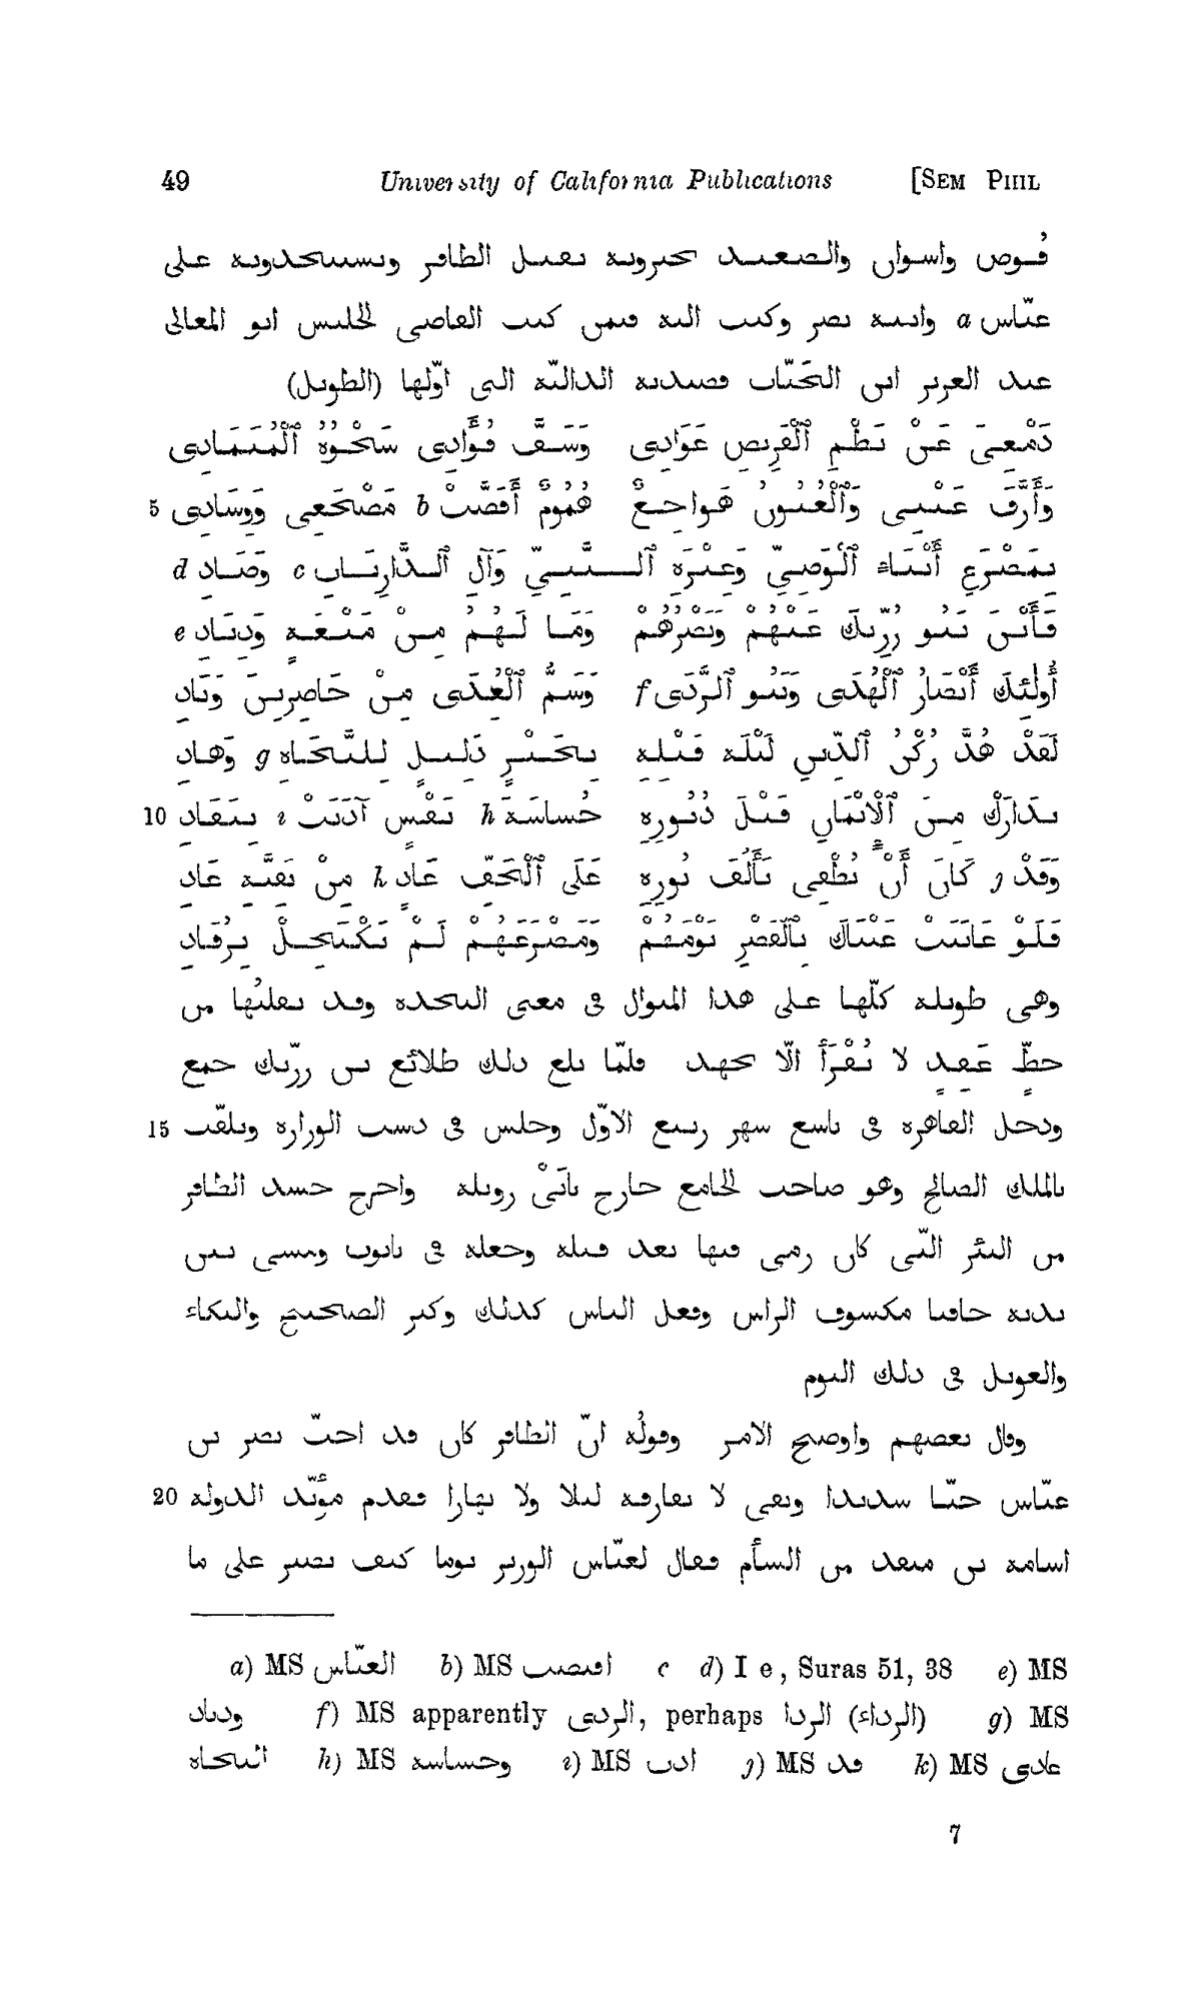 49 University of California Publications [SEM PHIL
قُوص واسوان والصعيد يخبرونه بقتل الظافر ويستنجدونه على
عبّاس a وابنه نصر وكتب اليه فيمن كتب القاضى الجليس ابو المعالى
عبد العزيز ابن الحَبّاب قصيدته الداليّة التى اوّلها (الطويل)
دَهَتْنِىَ عَنْ نَظْمِ ٱلْقَرِيضِ عَوَادِى وَشَفَّ فُؤَادِى شَجْوُهُ ٱلْمُتَمَادِى
وَأَرَّقَ عَيْنِى وَٱلْعُيُونُ هَواجِعٌ هُمُومٌ أَقَضَّتْ b مَضْجَعِى وَوِسَادِى 5
بِمَصْرَعِ أَبْنَاءِ ٱلْوَصِىِّ وَعِتْرَةِ ٱلنَّبِىِّ وَآلِ ٱلذَّارِيَاتِ c وَصَادِ d
فَأَيْنَ بَنُو رُزِّيكَ عَنْهُمْ وَنَصْرُهُمْ وَمَا لَهُمُ مِنْ مَنْعَةٍ وَذِيَادِ e
أُولٰئِكَ أَنْصَارُ ٱلْهُدَى وَبَنُو ٱلرَّدَى f وَسَمُّ ٱلْعِدَى مِنْ حَاضِرِينَ وَبَادِ
لَقَدْ هُدَّ رُكْنُ ٱلدِّينِ لَيْلَةَ قَتْلِهِ بِخَيْرِ دَلِيلٍ لِلنَّجَاةِ g وَهَادِ
تَدَارَكْ مِنَ ٱلْإِيْمَانِ قَبْلَ دُثُورِهِ حُشَاشَةَ h نَفْسٍ آذَنَتْ i بِنَفَادِ 10
وَقَدْ j كَانَ أَنْ يُطْفِى تَأَلُّقَ نُورِهِ عَلَى ٱلْحَقِّ عَادٍ k مِنْ بَقِيَّةِ عَادِ
فَلَوْ عَايَنَتْ عَيْنَاكَ بِٱلْقَصْرِ يَوْمَهُمْ وَمَصْرَعَهُمْ لَمْ تَكْتَحِلْ بِرُقَادِ
وهى طويلة كلّها على هذا المنوال فى معنى النجدة وقد نقلتُها من
خطٍّ عَقِدٍ لا يُقْرَأُ الّا بجهد فلمّا بلغ ذلك طلائع بن رزّيك جمع
ودخل القاهرة فى تاسع شهر ربيع الاوّل وجلس فى دست الوزارة وتلقّب 15
بالملك الصالح وهو صاحب الجامع خارج بابَىْ زويلة واخرج جسد الظافر
من البئر التّى كان رمى فيها بعد قتله وجعله فى تابوت ومشى بين
يديه حافيا مكشوف الراس وفعل الناس كذلك وكثر الضجيج والبكاء
والعويل فى ذلك اليوم
وقال بعضهم واوضح الامر وقولُه انّ الظافر كان قد احبّ نصر بن
عبّاس حبّا شديدا وبقى لا يفارقه ليلا ولا نهارا فقدم مؤيّد الدولة 20
اسامة بن منقذ من الشأم فقال لعبّاس الوزير يوما كيف تصبر على ما
a) MS العبّاس b) MS اقتضت c d) I e, Suras 51, 38 e) MS
ودياد f) MS apparently الردى, perhaps الردا (الرداء) g) MS
النجاة h) MS وحساسة i) MS ادب j) MS قد k) MS عادى
7